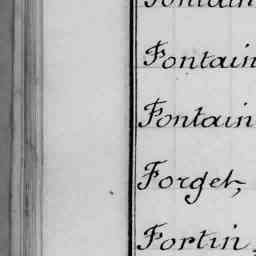 Fontain
Fontain
Fontain
Forget,
Fortin,